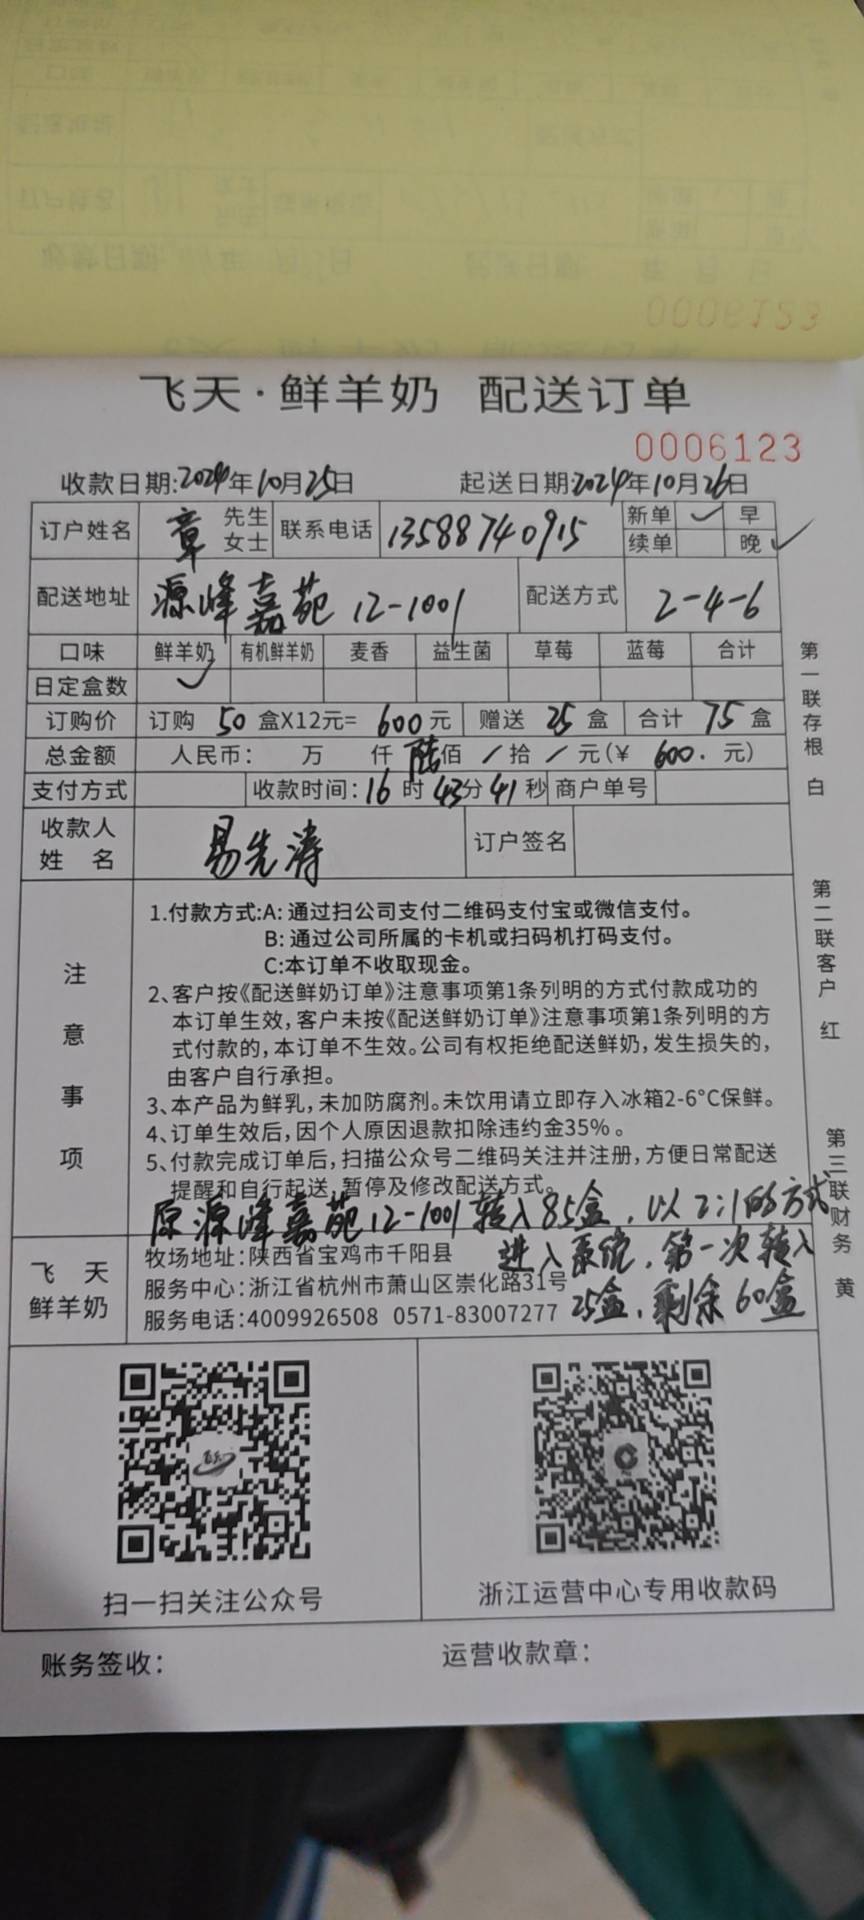 飞天·鲜羊奶 配送订单
0006123
收款日期:2024年10月25日 起送日期:2024年10月26日
订户姓名 章 先生 女士 联系电话 13588740915 新单 ✓ 早
续单 晚 ✓
配送地址 源峰嘉苑 12-1001 配送方式 2-4-6
口味 鲜羊奶 有机鲜羊奶 麦香 益生菌 草莓 蓝莓 合计
日定盒数 ✓
订购价 订购 50 盒X12元= 600元 赠送 25 盒 合计 75 盒
总金额 人民币: 万 仟 陆佰 / 拾 / 元(¥ 600. 元)
支付方式 收款时间:16时43分41秒 商户单号
收款人姓名 易先涛 订户签名
注意事项
1.付款方式:A:通过扫公司支付二维码支付宝或微信支付。
B:通过公司所属的卡机或扫码机打码支付。
C:本订单不收取现金。
2、客户按《配送鲜奶订单》注意事项第1条列明的方式付款成功的
本订单生效,客户未按《配送鲜奶订单》注意事项第1条列明的方
式付款的,本订单不生效。公司有权拒绝配送鲜奶,发生损失的,
由客户自行承担。
3、本产品为鲜乳,未加防腐剂。未饮用请立即存入冰箱2-6°C保鲜。
4、订单生效后,因个人原因退款扣除违约金35%。
5、付款完成订单后,扫描公众号二维码关注并注册,方便日常配送
提醒和自行起送,暂停及修改配送方式。
原源峰嘉苑12-1001转入85盒,以2:1的方式
进入系统,第一次转入
25盒,剩余60盒
飞天鲜羊奶
牧场地址:陕西省宝鸡市千阳县
服务中心:浙江省杭州市萧山区崇化路31号
服务电话:4009926508 0571-83007277
扫一扫关注公众号
浙江运营中心专用收款码
账务签收:
运营收款章:
第一联存根 白
第二联客户 红
第三联财务 黄
0006123